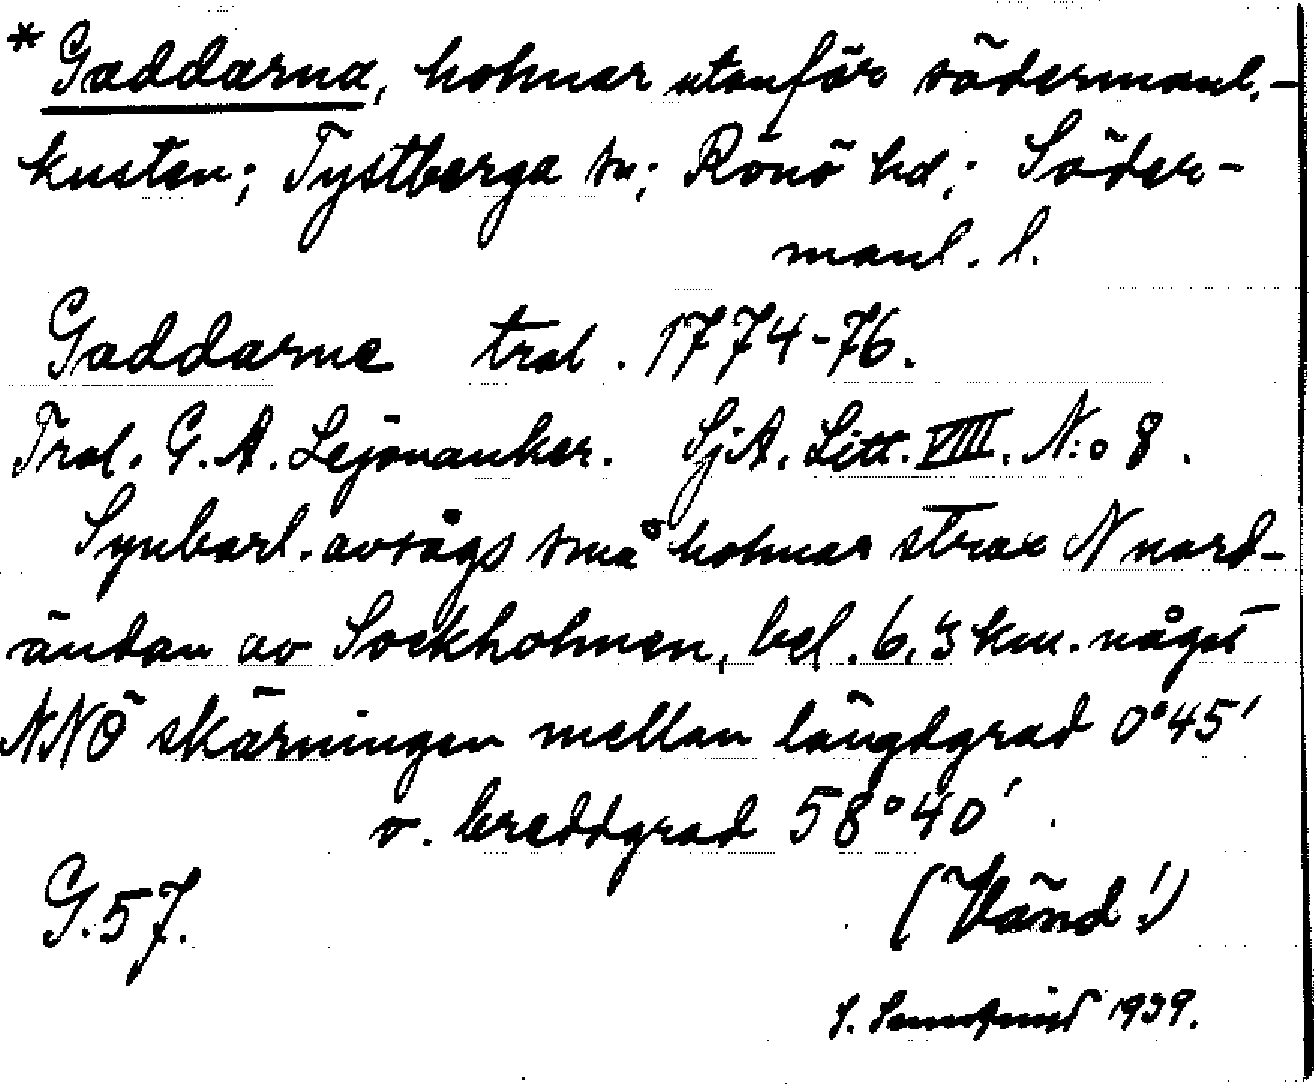 * Gaddarna, holmar utanför södermanl.-
kusten; Tystberga sn; Rönö hd; Söder-
manl. l.
Gaddarne trol. 1774-76.
Trol. G. A. Lejonanker. SjA. Litt. VIII. N:o 8.
Synbarl. avsågs små holmar strax N nord-
ändan av Sockholmen, bel. 6,3 km. något
NNÖ skärningen mellan längdgrad 0°45'
o. breddgrad 58°40'
G.57. (Vänd!)
1939.